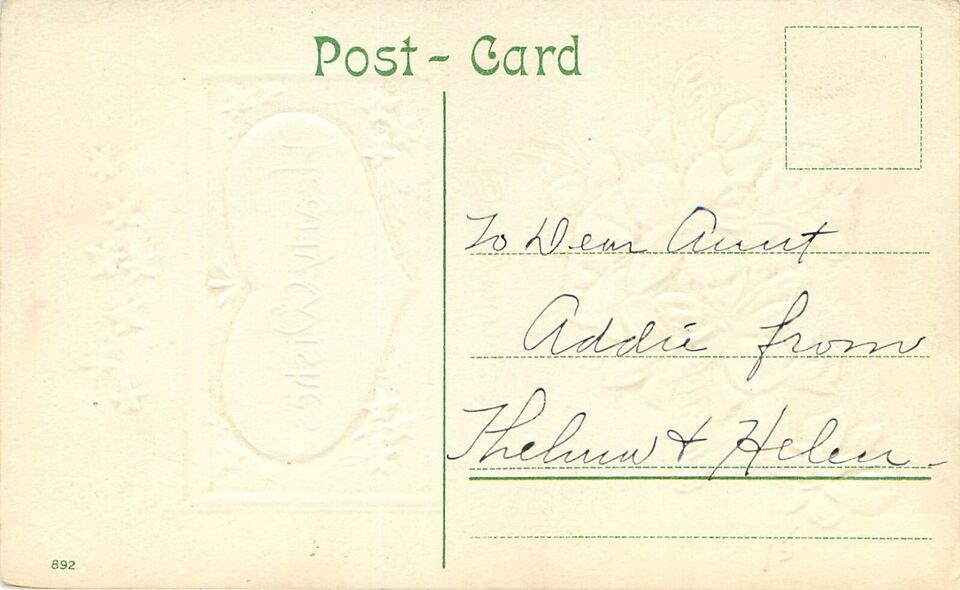 Post - Card
To Dear Aunt
Addie from
Thelma & Helen.
892